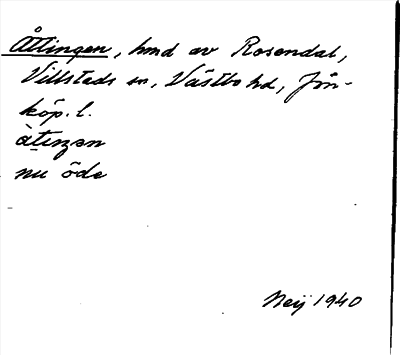 Åttingen, hmd av Rosendal,
Villstads sn, Västbo hd, Jön-
köp. l.
àtıŋən
nu öde
Neij 1940